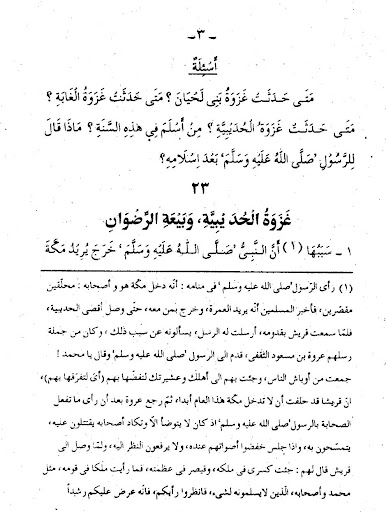 -٣-
أَسْئِلَةٌ
مَتَى حَدَثَتْ غَزْوَةُ بَنِى لَحْيَانَ؟ مَتَى حَدَثَتْ غَزْوَةُ الْغَابَةِ؟
مَتَى حَدَثَتْ غَزْوَةُ الْحُدَيْبِيَّةِ؟ مِنْ أَسْلَمَ فِي هٰذِهِ السَّنَةِ؟ مَاذَا قَالَ
لِلرَّسُوْلِ 'صَلَّى اللّٰهُ عَلَيْهِ وَسَلَّمَ' بَعْدَ اِسْلَامِهِ؟
٢٣
غَزْوَةُ الْحُدَيْبِيَّةِ، وَبَيْعَةِ الرِّضْوَانِ
١ - سَبَبُهَا (١) أَنَّ النَّبِيُّ 'صَلَّى اللّٰهُ عَلَيْهِ وَسَلَّمَ' خَرَجَ يُرِيْدُ مَكَّةَ
(١) رأى الرّسول 'صلى الله عليه وسلم' فى منامه: أنّه دخل مكّة هو و أصحابه: محلّقين
مقصّرين، فأخبر المسلمين أنّه يريد العمرة، وخرج بمن معه، حتّى وصل أقصى الحديبية،
فلمّا سمعت قريش بقدومه، أرسلت له الرسل، يسألونه عن سبب ذلك، وكان من جملة
رسلهم عروة بن مسعود الثّقفى، قدم الى الرسول 'صلى الله عليه وسلم' وقال يا محمد!
جمعت من أوباش الناس، وجئت بهم الى أهلك وعشيرتك لتفضّها بهم (أى لتفرّقها بهم)،
انّ قريشا قد حلفت أن لا تدخل مكّة هذا العام أبداء، ثمّ رجع عروة بعد أن رأى ماتفعل
الصحابة بالرسول 'صلى الله عليه وسلم' اذ كان لا يتوضأ الّا وتكاد أصحابه يقتتلون عليه،
يتمسّحون به، واذا جلس خفضوا أصواتهم عنده، ولا يرفعون النظر اليه، ولمّا وصل الى
قريش قال لهم: جئت كسرى فى ملكه، وقيصر فى عظمته، فما رأيت ملكا فى قومه، مثل
محمد وأصحابه، الّذين لايسلمونه لشىء، فانظروا رأيكم، فانّه عرض عليكم رشداً